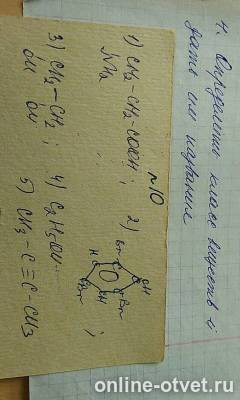 4. Определить класс веществ и
дать им названия
№10
1) CH2-CH2-COOH; 2)
NH2
3) CH2-CH2; 4) C2H5OH
OH OH
5) CH3-C≡C-CH3
online-otvet.ru